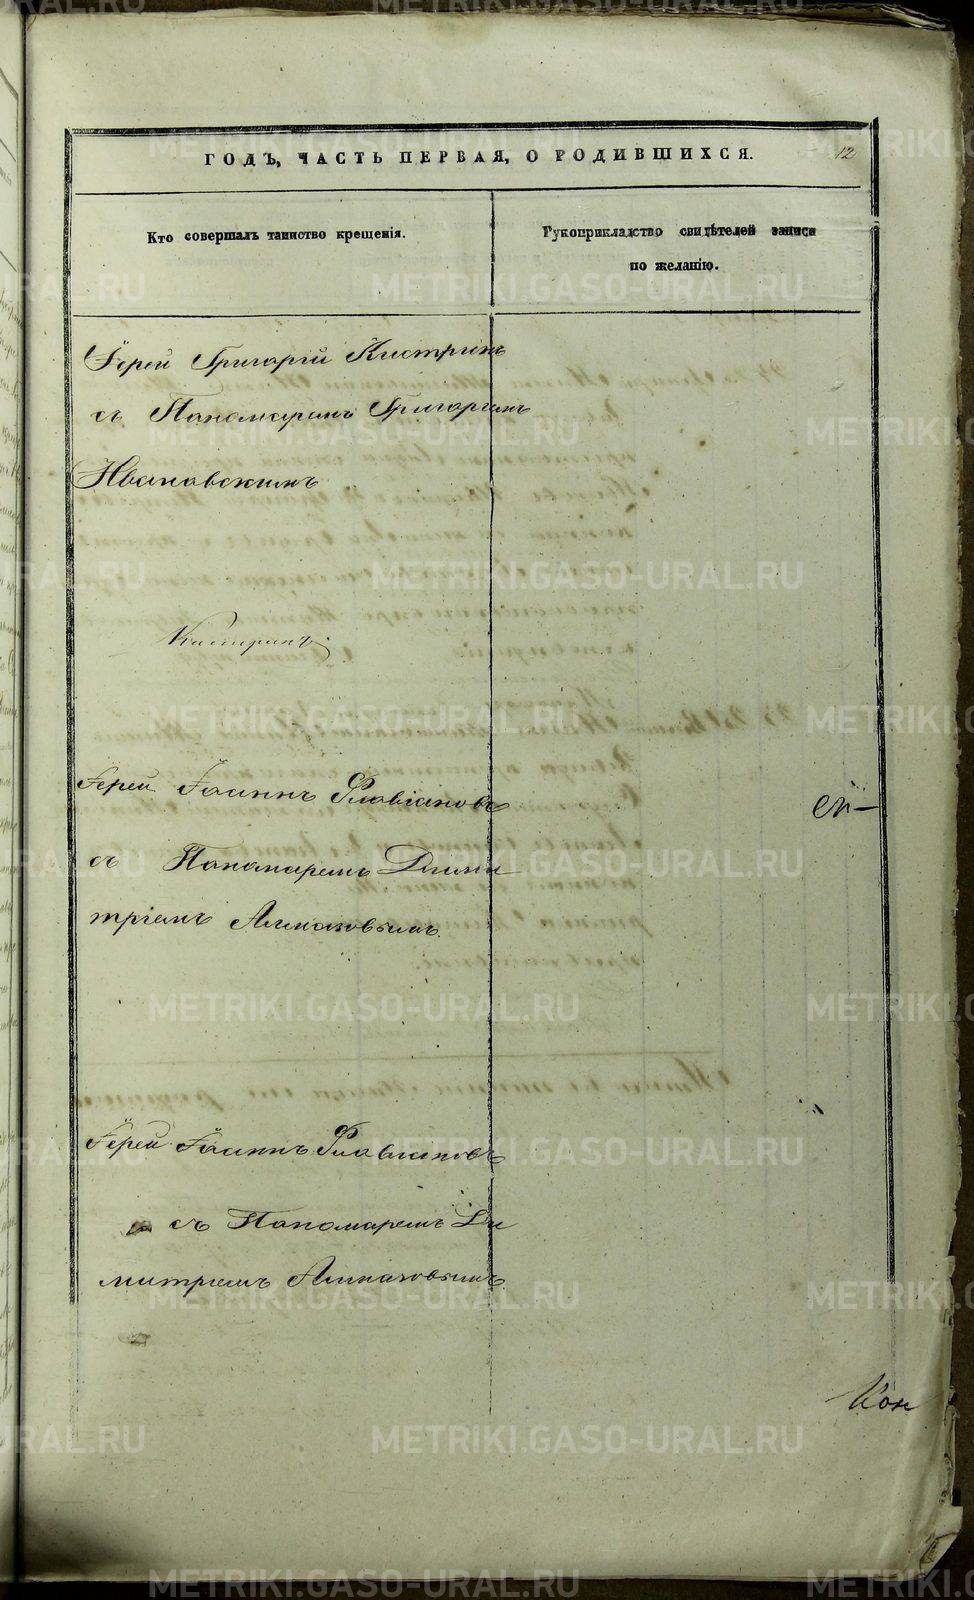 ГОДЪ, ЧАСТЬ ПЕРВАЯ, О РОДИВШИХСЯ.
12
Кто совершалъ таинство крещенія.
Рукоприкладство свидѣтелей записи
по желанію.
Іерей Григорій Кистринъ
съ Пономаремъ Григоріемъ
Ивановскимъ
Кастринъ
Іерей Іоаннъ Флавіановъ
ей
съ Пономаремъ Дими
тріемъ Алмазовымъ.
Іерей Іоаннъ Флавіановъ
съ Пономаремъ Ди
митріемъ Алмазовымъ
Кон
METRIKI.GASO-URAL.RU